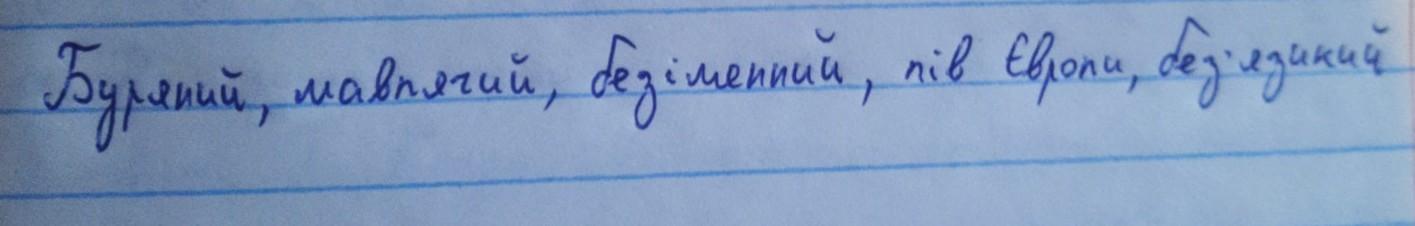 Буряний, мавпячий, безіменний, пів Європи, без'язикий